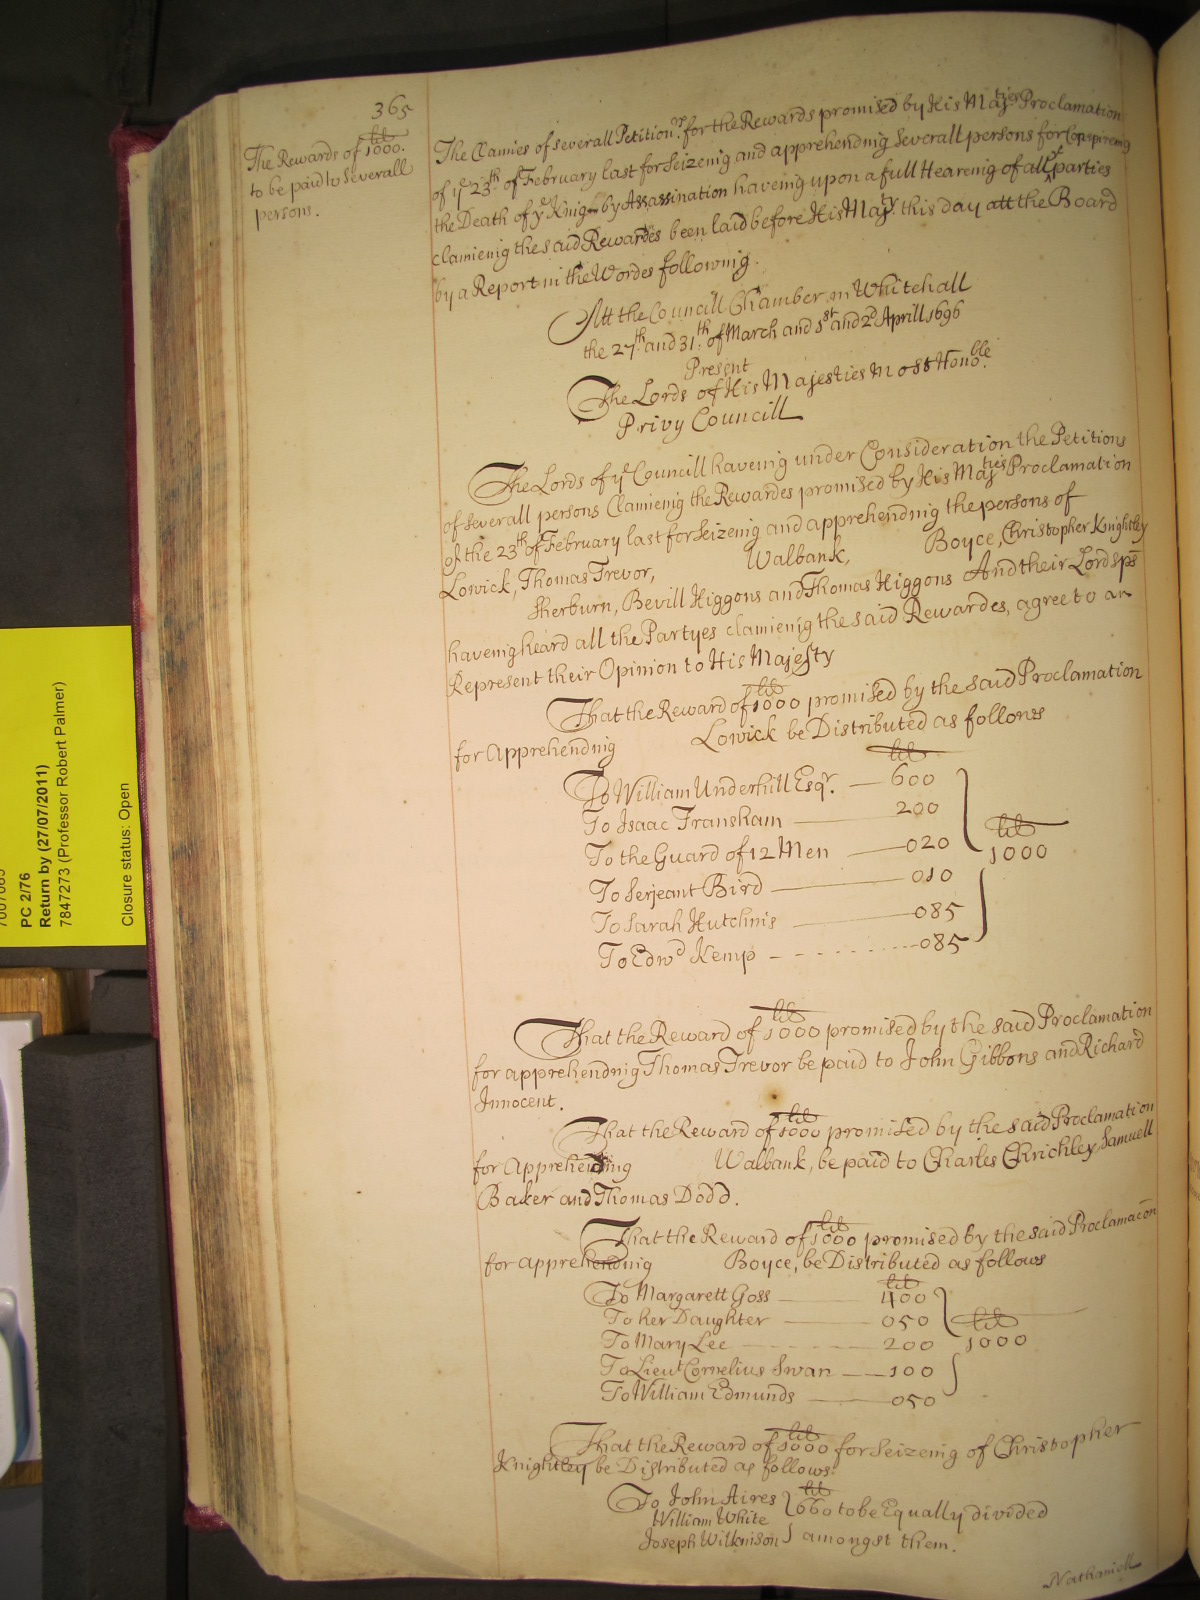 365
The Rewards of lib 1000.
to be paid to Severall
persons.
The Claimes of severall Petitionrs. for the Rewards promised by His Majties Proclamation
of ye 23th of February last for seizeing and apprehending severall persons for Conspireing
the Death of ye King by Assassination haveing upon a full Hearing of all ye parties
claimeing the said Rewardes been laid before His Majty. this day att the Board
by a Report in the Wordes following.
Att the Councill Chamber in Whitehall
the 27th and 31th of March and 1st and 2d Aprill 1696
Present
The Lords of His Majesties most Honoble.
Privy Councill
The Lords of ye Councill haveing under Consideration the Petitions
of severall persons Claimeing the Rewardes promised by His Majties Proclamation
of the 23th of February last for seizeing and apprehending the persons of
Lowick, Thomas Trevor, Walbank, Boyce, Christopher Knightley
Sherburn, Bevill Higgons and Thomas Higgons And their Lordsps
haveing heard all the Partyes claimeing the said Rewardes, agree to
Represent their Opinion to His Majesty
That the Reward of lib 1000 promised by the said Proclamation
for Apprehending Lowick be Distributed as followes
lib
To William Underhill Esqr. — 600
To Isaac Fransham — 200
To the Guard of 12 Men — 020
lib
1000
To Serjeant Bird — 010
To Sarah Hutchins — 085
To Edwd Kemp - - - - - 085
That the Reward of lib 1000 promised by the said Proclamation
for apprehending Thomas Trevor be paid to John Gibbons and Richard
Innocent.
That the Reward of lib 1000 promised by the said Proclamation
for Apprehending Walbank, be paid to Charles Chrichley, Samuell
Baker and Thomas Dodd.
That the Reward of lib 1000 promised by the said Proclamacon
for apprehending Boyce, be Distributed as follows
lib
To Margarett Goss — 400
To her Daughter — 050
lib
To Mary Lee — 200
1000
To Lieut Cornelius Swan — 100
To William Edmunds — 050
That the Reward of lib 1000 for Seizeing of Christopher
Knightley be Distributed as follows.
To John Aires lib
660 to be Equally divided
William White
Joseph Wilkinson amongst them.
Nathaniell
PC 2/76
Return by (27/07/2011)
7847273 (Professor Robert Palmer)
Closure status: Open